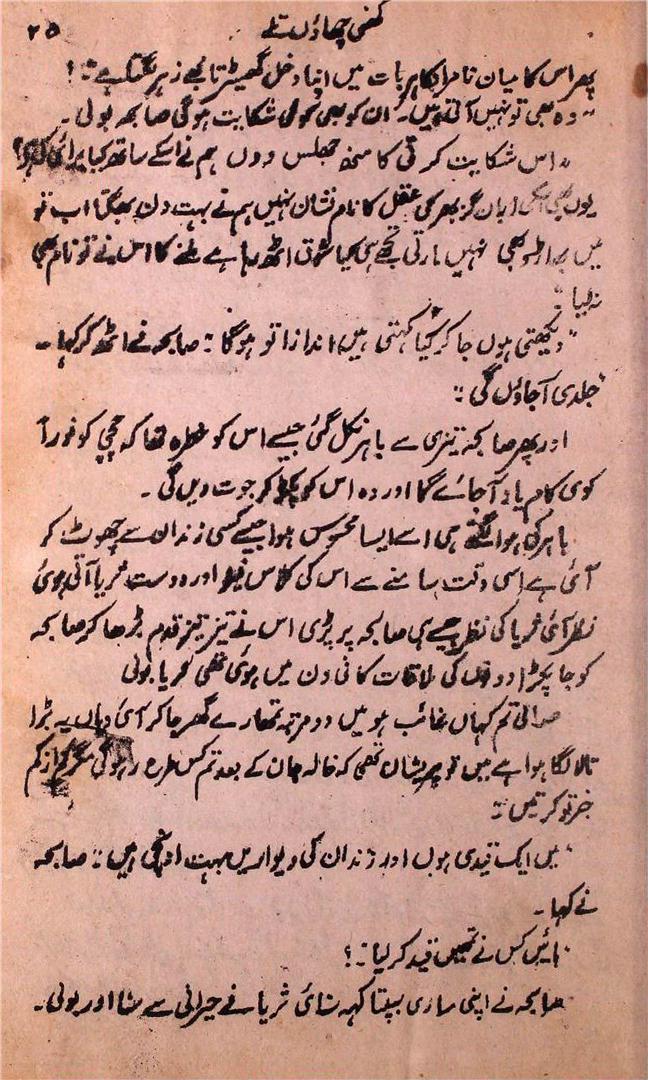 گھنی چھاؤں تلے
۲۵
پھر اس کا میان نامراد ہر بات میں اپنا دخل گھیڑتا مجھے زہر لگتا ہے :؟
"وہ بھی تو نہیں آتی ہیں۔ ان کو بھی کوئی شکایت ہوگی صابحہ بولی۔
"اس شکایت کرتی کا منھ جھلس دوں ہم نے اسکے ساتھ کیا برائی کی
یوں بھی اسکی زبان گز بھر کی عقل کا نام نشان نہیں ہم نے بہت دن بھگتا اب تو
میں بھی نہیں مارتی تجھے ہی کیا شوق اٹھ رہا ہے ملنے کا اس نے تو نام بھی
نہ لیا :
"دیکھتی ہوں جا کر کیا کہتی ہیں اندازا تو ہوگا : صابحہ نے اٹھ کر کہا۔
"جلدی آجاؤں گی :
اور پھر صابحہ تیزی سے باہر نکل گئی جیسے اس کو خطرہ تھا کہ چچی کو فوراً
کوی کام یاد آجائے گا اور وہ اس کو پکڑ کر جوت دیں گی۔
باہر کی ہوا لگتے ہی اسے ایسا محسوس ہوا جیسے کسی زندان سے چھوٹ کر
آئی ہے اسی وقت سامنے سے اس کی کلاس فیلو اور دوست ثریا آتی ہوئی
نظر آئی ثریا کی نظر جیسے ہی صابحہ پر پڑی اس نے تیز تیز قدم بڑھا کر صابحہ
کو جا پکڑا دونوں کی ملاقات کافی دن میں ہوئی تھی ثریا بولی
تم کہاں غائب ہو میں دو مرتبہ تمھارے گھر جا کر آئی وہاں یہ بڑا
تالا لگا ہوا ہے میں تو پریشان تھی کہ خالہ جان کے بعد تم کس طرح رہو گی مگر کم از کم
خبر تو کرتیں :
"میں ایک قیدی ہوں اور زندان کی دیواریں بہت اونچی ہیں : صابحہ
نے کہا۔
"ہائیں کس نے تمھیں قید کر لیا :؟
صابحہ نے اپنی ساری بپتا کہہ سنائی ثریا نے حیرانی سے سنا اور بولی۔